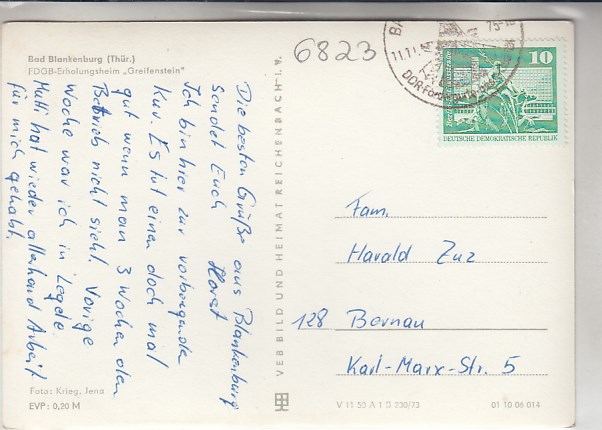 Bad Blankenburg (Thür.)
FDGB-Erholungsheim „Greifenstein"
6823
11.11.
75-
10
DEUTSCHE DEMOKRATISCHE REPUBLIK
Die besten Grüße aus Blankenburg
sendet Euch Horst
Ich bin hier zur vorbeugende
Kur. Es tut einen doch mal
gut wenn man 3 Wochen den
Betrieb nicht sieht. Vorige
Woche war ich in Legde
Mutti hat wieder allerhand Arbeit
für mich gehabt.
VEB BILD UND HEIMAT REICHENBACH i. V.
Fam.
Harald Zuz
128 Bernau
Karl-Marx-Str. 5
Foto: Krieg, Jena
EVP: 0,20 M
V 11 50 A 1 G 230/73
01 10 06 014